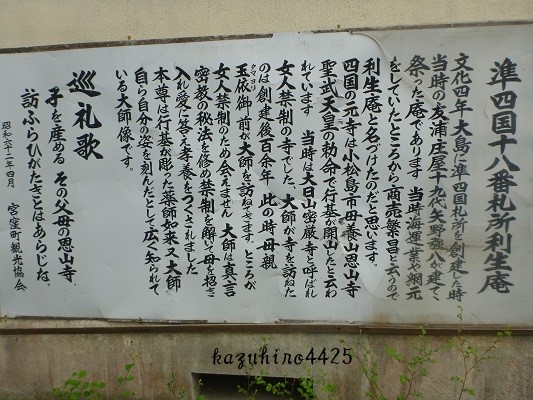 準四国十八番札所利生庵
文化四年大島に準四国札所を創建した時
当時の友浦庄屋十九代矢野強八が建て、
祭った庵であります 当時海運業や網元
をしていたところから商売繁昌と云うので
利生庵と名づけたのだと思います。
四国の元寺は小松島市母養山恩山寺
聖武天皇の勅命で行基が開山したと云わ
れています 当時は大日山密厳寺と呼ばれ
女人禁制の寺でした、大師が寺を訪ねた
のは創建後百余年 此の時母親
玉依御前が大師を訪ねます。ところが
女人禁制のため会えません 大師は真言
密教の秘法を修め禁制を解いて母を招き
入れ爰に答え孝養をつくされました
本尊は行基が彫った薬師如来 又大師
自ら自分の姿を刻んだとして広く知られて
いる大師像です。
巡礼歌
子を産める その父母の恩山寺、
訪ふらひがたきことはあらじな、
昭和六十二年四月 宮窪町観光協会
kazuhiro4425